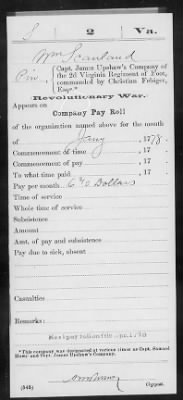 S 2 Va.
Wm Scanland
Capt. James Upshaw's Company of
the 2d Virginia Regiment of Foot,
commanded by Christian Febiger,
Esqr.*
Revolutionary War.
Appears on
Company Pay Roll
of the organization named above for the month
of Jany, 1778.
Commencement of time , 17
Commencement of pay , 17
To what time paid , 17
Pay per month 6 2/3 Dollars
Time of service
Whole time of service
Subsistence
Amount
Amt. of pay and subsistence
Pay due to sick, absent
Casualties
Remarks:
*This company was designated at various times as Capt. Samuel
Hawes' and Capt. James Upshaw's Company.
(545) Copyist.